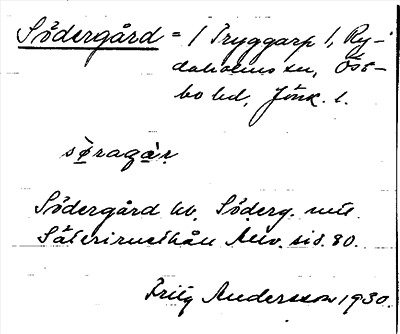 Södergård = 1 Tryggarp 1, Ry-
daholms sn, Öst-
bo hd, Jönk. l.
söragår
Södergård hv. Söderg. mtl.
Säteri Av. sid. 80.
Fritz Andersson 1930.